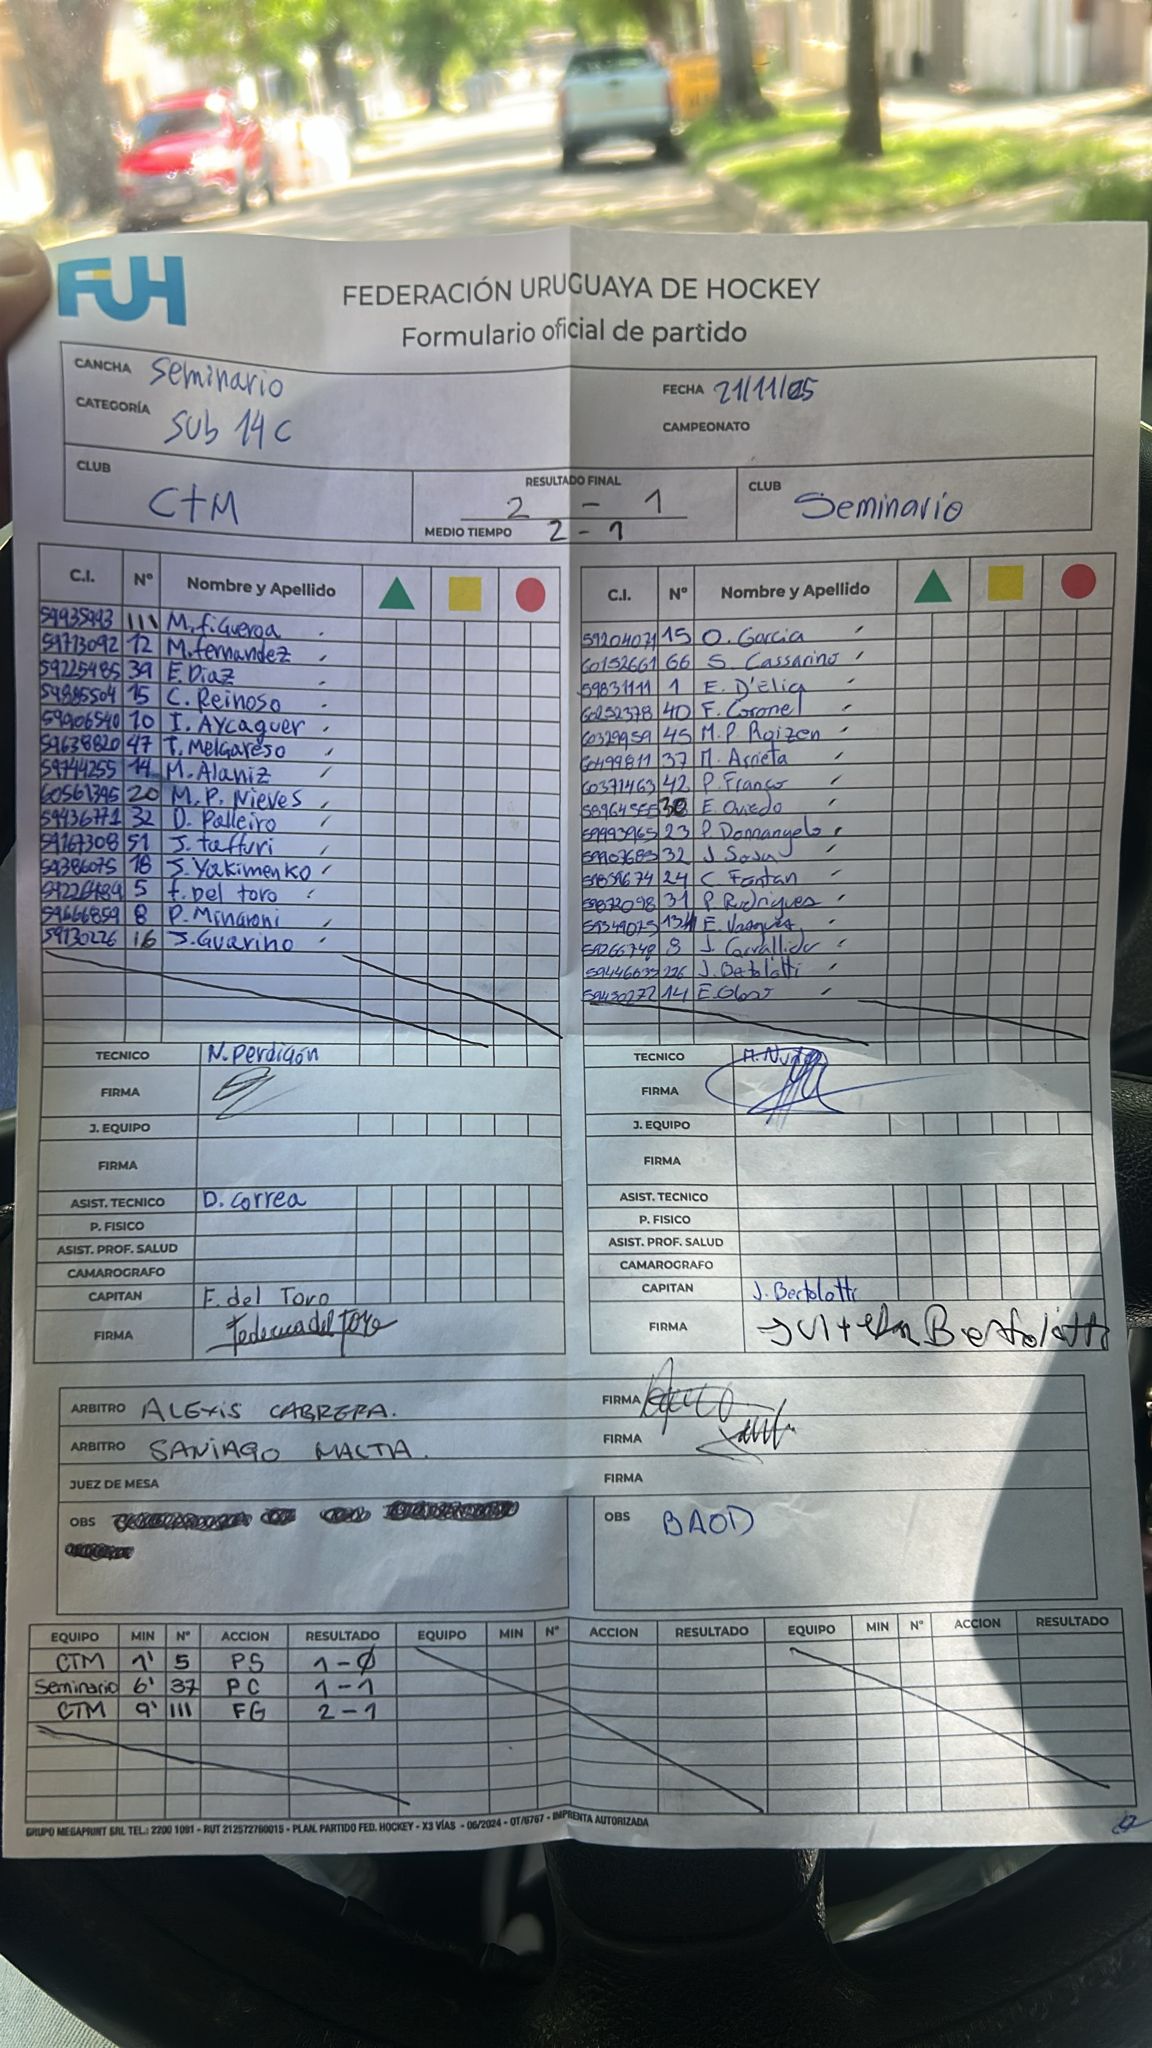 FUH
FEDERACIÓN URUGUAYA DE HOCKEY
Formulario oficial de partido
CANCHA Seminario
FECHA 21/11/25
CATEGORÍA Sub 14 C
CAMPEONATO
CLUB CTM
RESULTADO FINAL 2 - 1
MEDIO TIEMPO 2 - 1
CLUB Seminario
C.I. Nº Nombre y Apellido
59935993 111 M. Figueroa
59713092 12 M. fernandez
59225485 39 E. Diaz
59885504 15 C. Reinoso
59906540 10 I. Aycaguer
59638820 47 T. Melgareso
59744255 14 M. Alaniz
60561395 20 M. P. Nieves
59436771 32 D. Palleiro
59167308 51 J. taffuri
59386075 18 S. Yakimenko
5 f. Del toro
59666859 8 P. Minaroni
59130226 16 J. Guarino
TECNICO N. Perdigón
FIRMA
J. EQUIPO
FIRMA
ASIST. TECNICO D. Correa
P. FISICO
ASIST. PROF. SALUD
CAMAROGRAFO
CAPITAN F. del Toro
FIRMA Federica del Toro
C.I. Nº Nombre y Apellido
59204071 15 O. Garcia
60152661 66 S. Cassarino
59831111 1 E. D'Elia
60252378 40 F. Coronel
60329959 45 M. P. Roizen
60499811 37 M. Arrieta
60371463 42 P. Franco
E. Oviedo
59993965 23 P. Domangelo
59907683 32 J. Sosa
59859674 24 C. Fontan
59872098 31 P. Rodrigues
59349075 E. Vazquez
59266748 8 J. Carrallido
59446635 226 J. Bertolotti
59430272 14 E.
TECNICO
FIRMA
J. EQUIPO
FIRMA
ASIST. TECNICO
P. FISICO
ASIST. PROF. SALUD
CAMAROGRAFO
CAPITAN J. Bertolotti
FIRMA Bertolotti
ARBITRO ALEXIS CABRERA. FIRMA
ARBITRO SANTIAGO FIRMA
JUEZ DE MESA FIRMA
OBS
OBS BAOD
EQUIPO MIN Nº ACCION RESULTADO EQUIPO MIN Nº ACCION RESULTADO EQUIPO MIN Nº ACCION RESULTADO
CTM 1' 5 PS 1 - 0
Seminario 6' 37 PC 1 - 1
CTM 9' 111 FG 2 - 1
GRUPO MEGAPRINT SRL TEL.: 2200 1091 - RUT 212572760015 - PLAN. PARTIDO FED. HOCKEY - X3 VÍAS - 06/2024 - OT/6767 - IMPRENTA AUTORIZADA